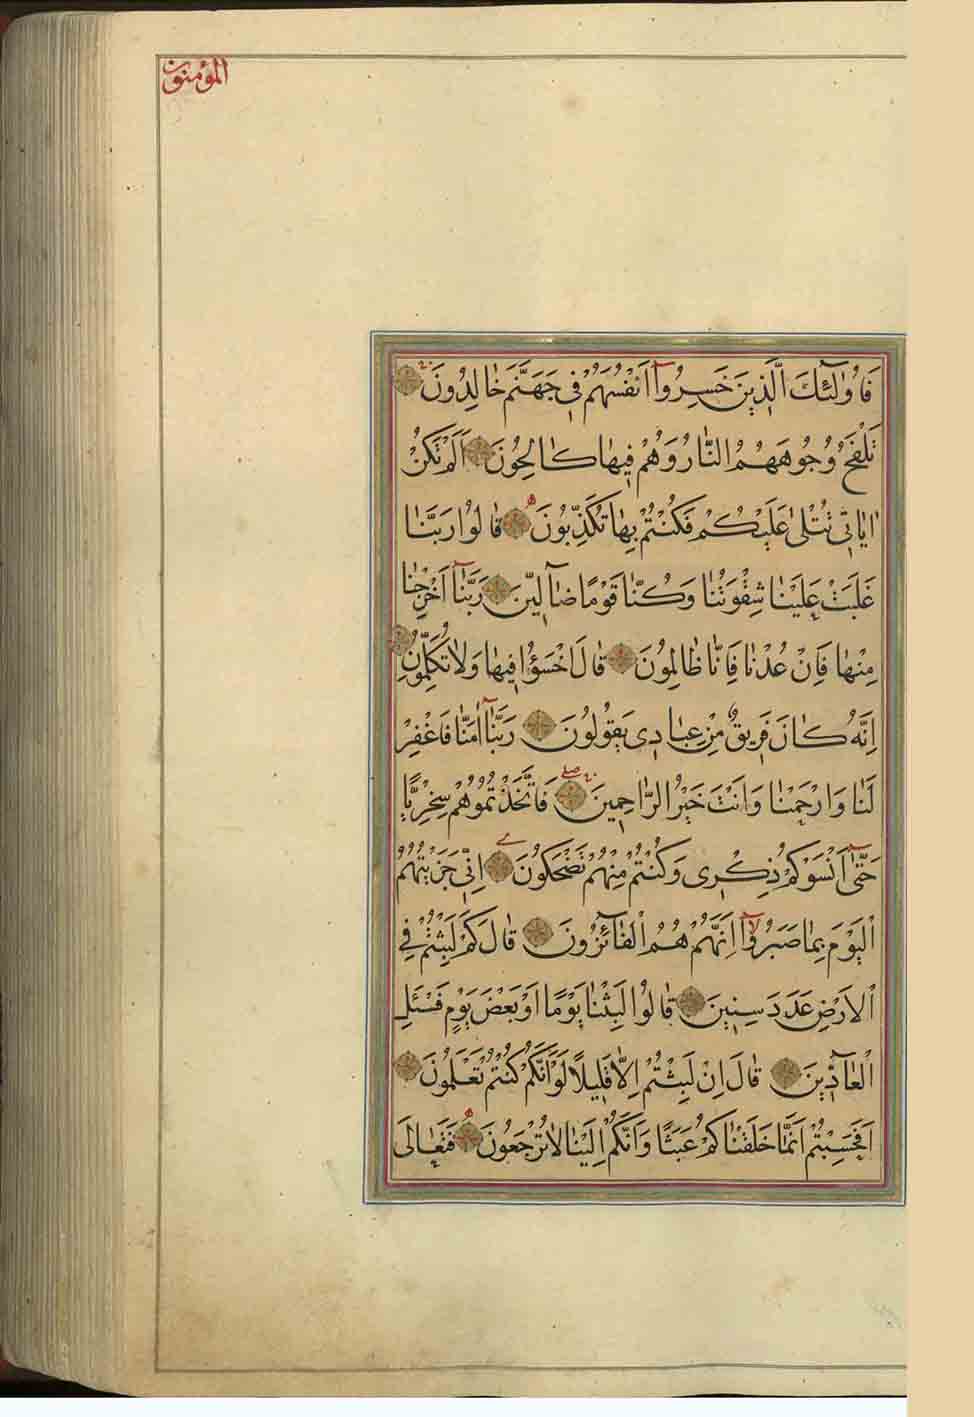 المؤمنون
فَاُولٰٓئِكَ الَّذِينَ خَسِرُٓوا اَنْفُسَهُمْ فِي جَهَنَّمَ خَالِدُونَ
تَلْفَحُ وُجُوهَهُمُ النَّارُ وَهُمْ فِيهَا كَالِحُونَ اَلَمْ تَكُنْ
اٰيَاتِي تُتْلٰى عَلَيْكُمْ فَكُنْتُمْ بِهَا تُكَذِّبُونَ قَالُوا رَبَّنَا
غَلَبَتْ عَلَيْنَا شِقْوَتُنَا وَكُنَّا قَوْمًا ضَٓالِّينَ رَبَّنَٓا اَخْرِجْنَا
مِنْهَا فَاِنْ عُدْنَا فَاِنَّا ظَالِمُونَ قَالَ اخْسَؤُا فِيهَا وَلَا تُكَلِّمُونِ
اِنَّهُ كَانَ فَرِيقٌ مِنْ عِبَادِي يَقُولُونَ رَبَّنَٓا اٰمَنَّا فَاغْفِرْ
لَنَا وَارْحَمْنَا وَاَنْتَ خَيْرُ الرَّاحِمِينَ فَاتَّخَذْتُمُوهُمْ سِخْرِيًّا
حَتّٰٓى اَنْسَوْكُمْ ذِكْرِي وَكُنْتُمْ مِنْهُمْ تَضْحَكُونَ اِنِّي جَزَيْتُهُمُ
الْيَوْمَ بِمَا صَبَرُٓوا اَنَّهُمْ هُمُ الْفَٓائِزُونَ قَالَ كَمْ لَبِثْتُمْ فِي
الْاَرْضِ عَدَدَ سِنِينَ قَالُوا لَبِثْنَا يَوْمًا اَوْ بَعْضَ يَوْمٍ فَسْئَلِ
الْعَٓادِّينَ قَالَ اِنْ لَبِثْتُمْ اِلَّا قَلِيلًا لَوْ اَنَّكُمْ كُنْتُمْ تَعْلَمُونَ
اَفَحَسِبْتُمْ اَنَّمَا خَلَقْنَاكُمْ عَبَثًا وَاَنَّكُمْ اِلَيْنَا لَا تُرْجَعُونَ فَتَعَالَى